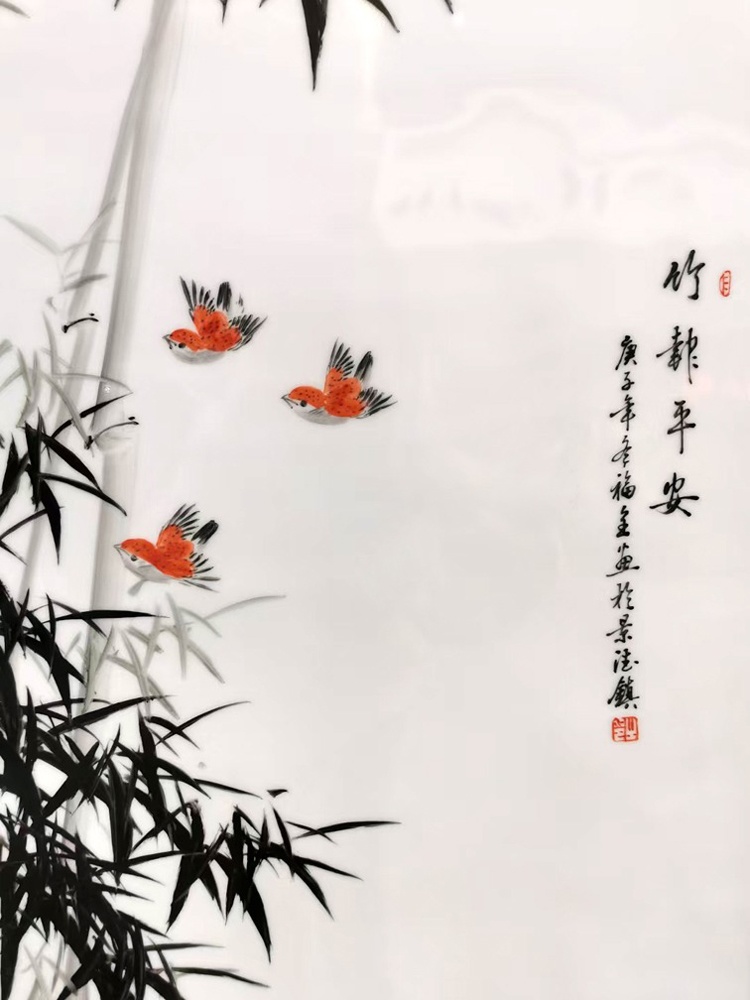 竹報平安
庚子年冬福全画於景德鎮